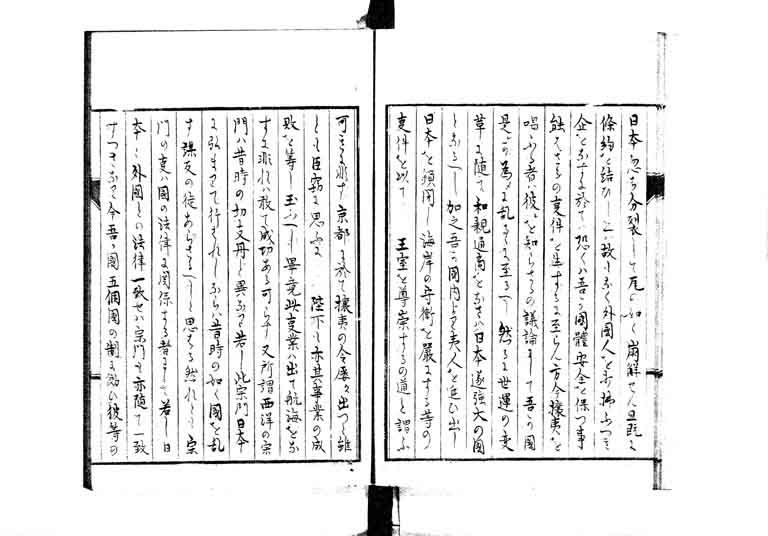 日本忽ち分裂して瓦の如く崩解せん且既に
條約を結ひし上ハ故もなく外國人を打拂ふつき
企をなすに於てハ恐くハ吾カ國體安全を保つ事
能ハさるの事件を生するに至らん方今攘夷を
唱ふる者ハ彼を知らさるの議論にして吾カ國
是カ為メに乱るゝに至るへし然るに世運の変
革に随て和親通商をなさハ日本遂強大の國
となるへし加之吾カ國内より夷人を追ひ出し
日本を鎖閉し海岸の守衛を嚴にする等の
事件を以て 王室を尊崇するの道と謂ふ
可きに非す京都に於て攘夷の令屡々出つと雖
とも臣窃に思ふに 陛下も亦其事業の成
敗を等し玉ふへし畢竟此事業ハ出て航海をな
すに非れハ敢て成功ある可らす又所謂西洋の宗
門ハ昔時の切支丹と異なり若し此宗門日本
に弘まりて行ハれしならハ昔時の如く國を乱
す謀反の徒あらさるへしと思はる然れとも宗
門の事ハ國の法律に関係する者にして若し日
本と外國との法律一致せハ宗門も亦随て一致
すつきなり今吾カ國五個國の制に倣ひ彼等の